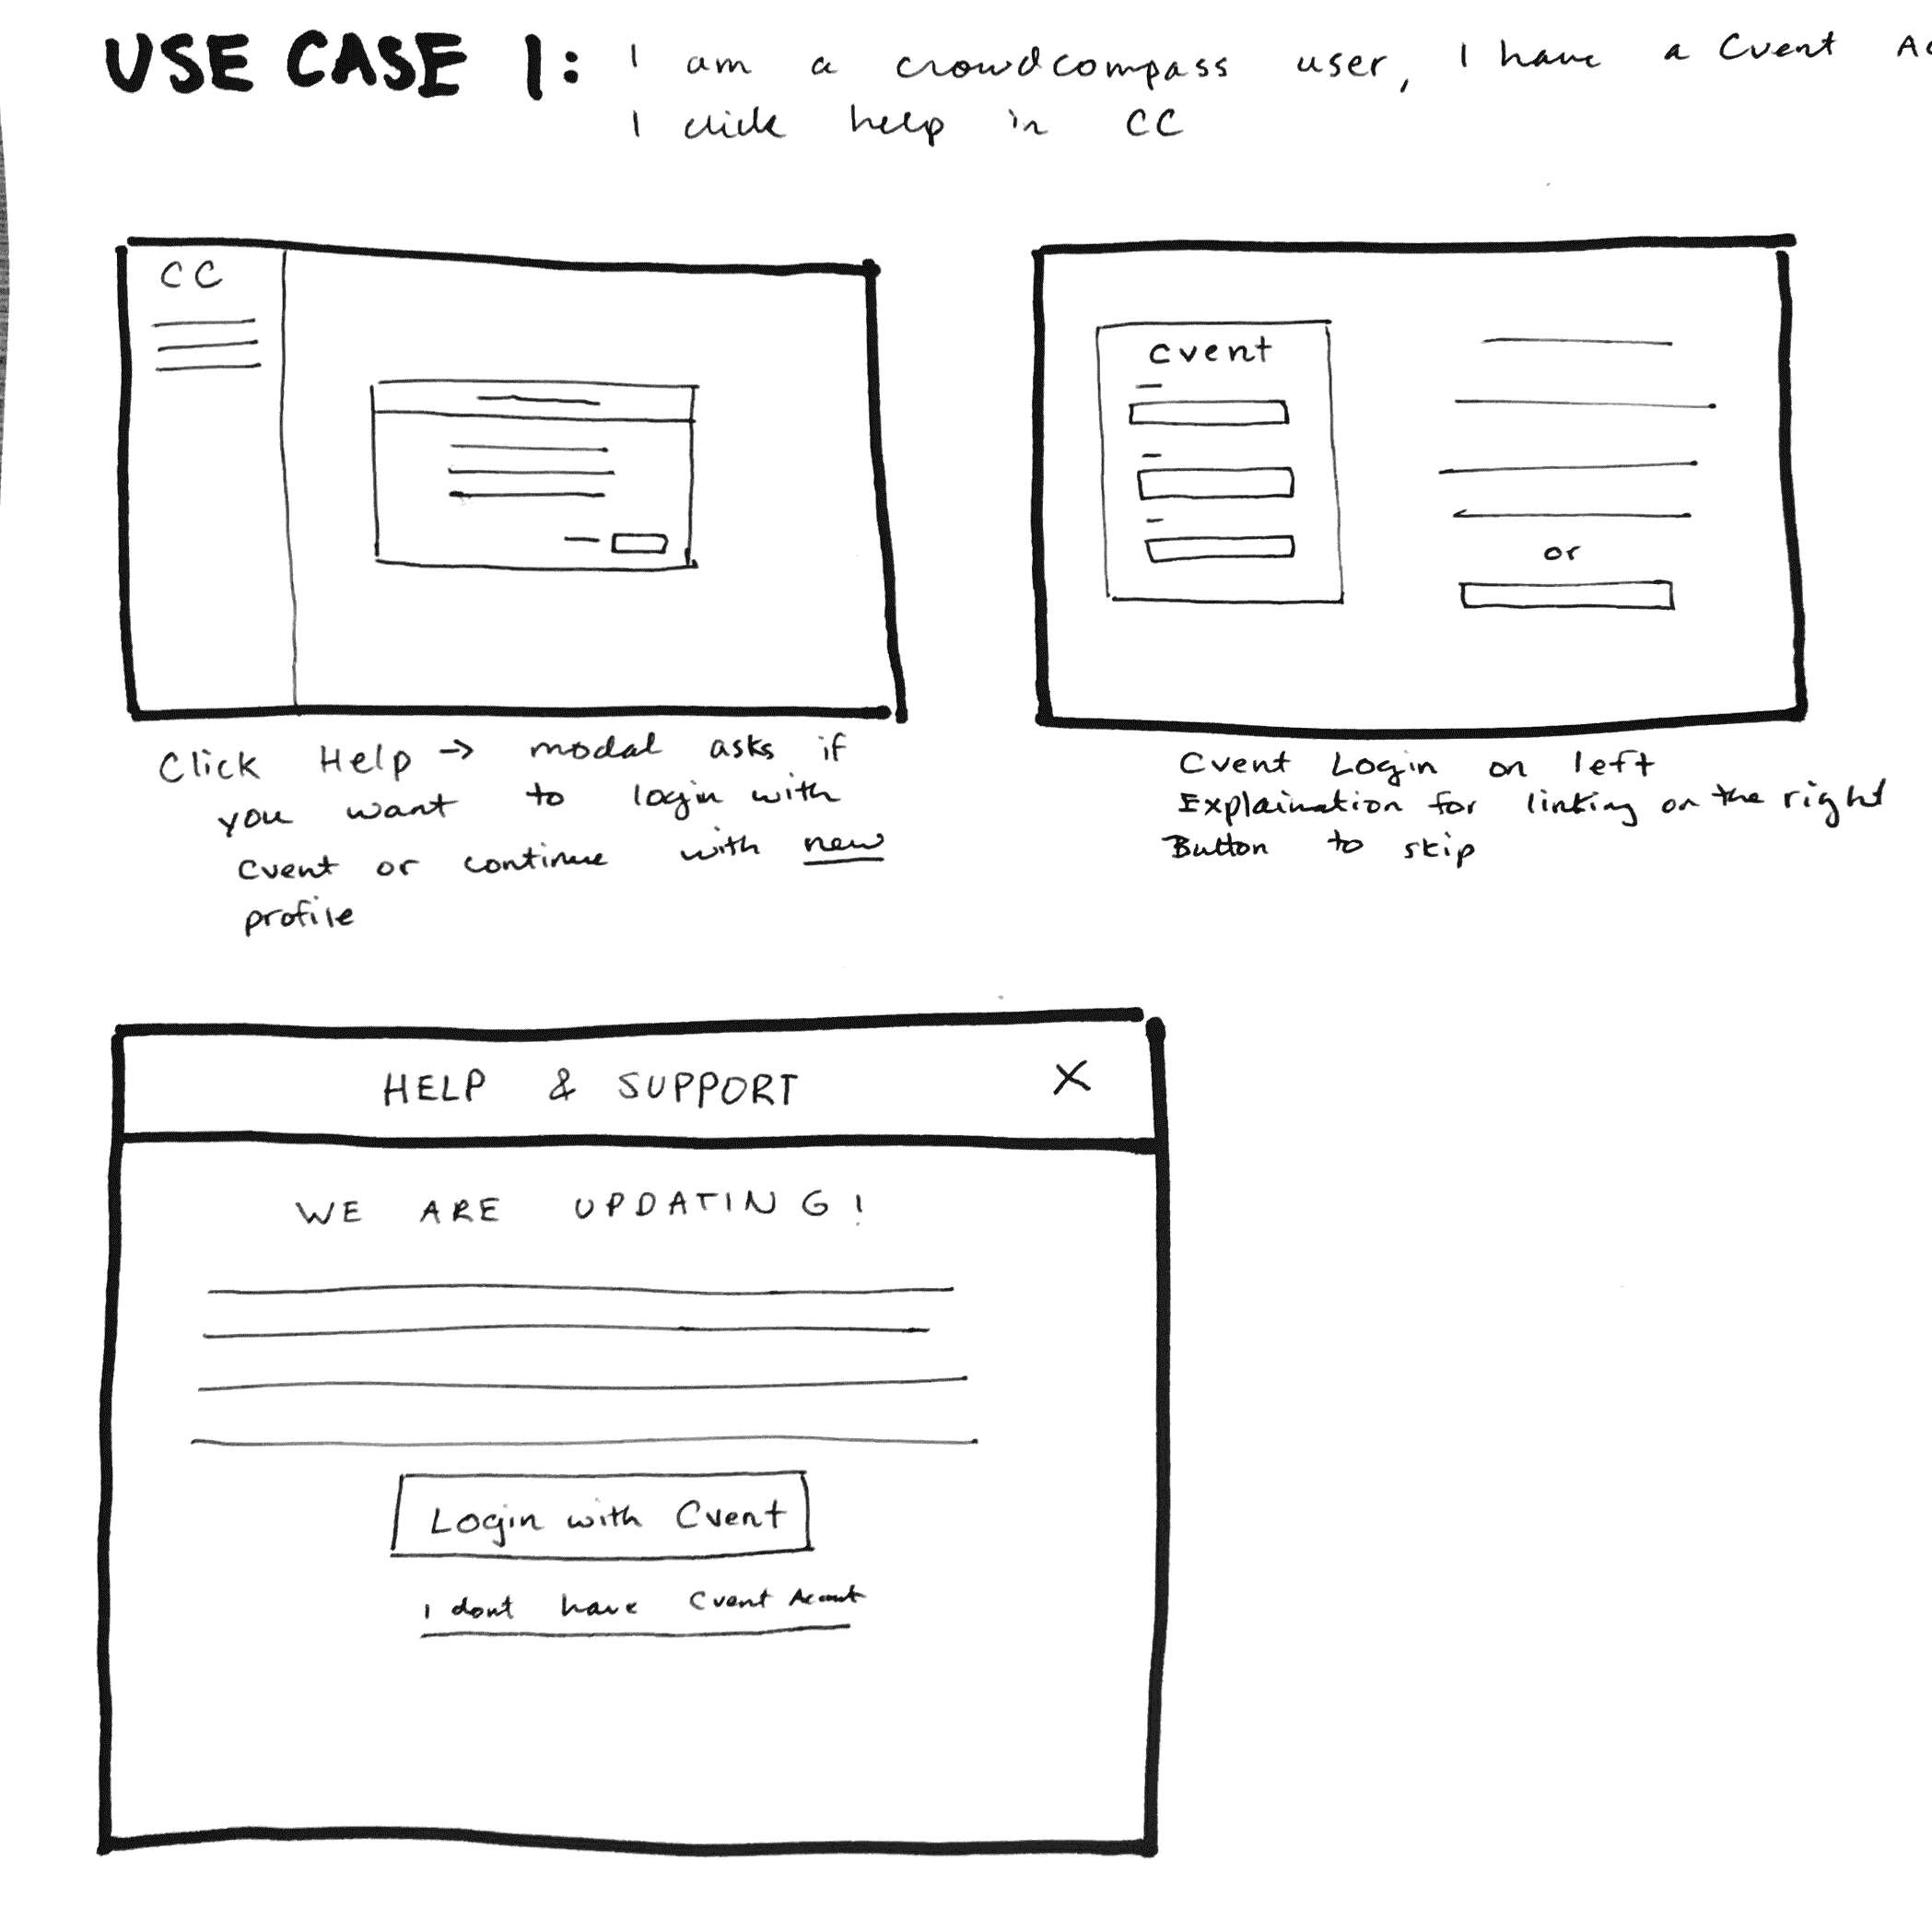 USE CASE 1: I am a crowdcompass user, I have a Cvent
I click help in CC
CC
Click Help → modal asks if
you want to login with
Cvent or continue with new
profile
cvent
or
Cvent Login on left
Explaination for linking on the right
Button to skip
HELP & SUPPORT X
WE ARE UPDATING!
Login with Cvent
I dont have Cvent Account